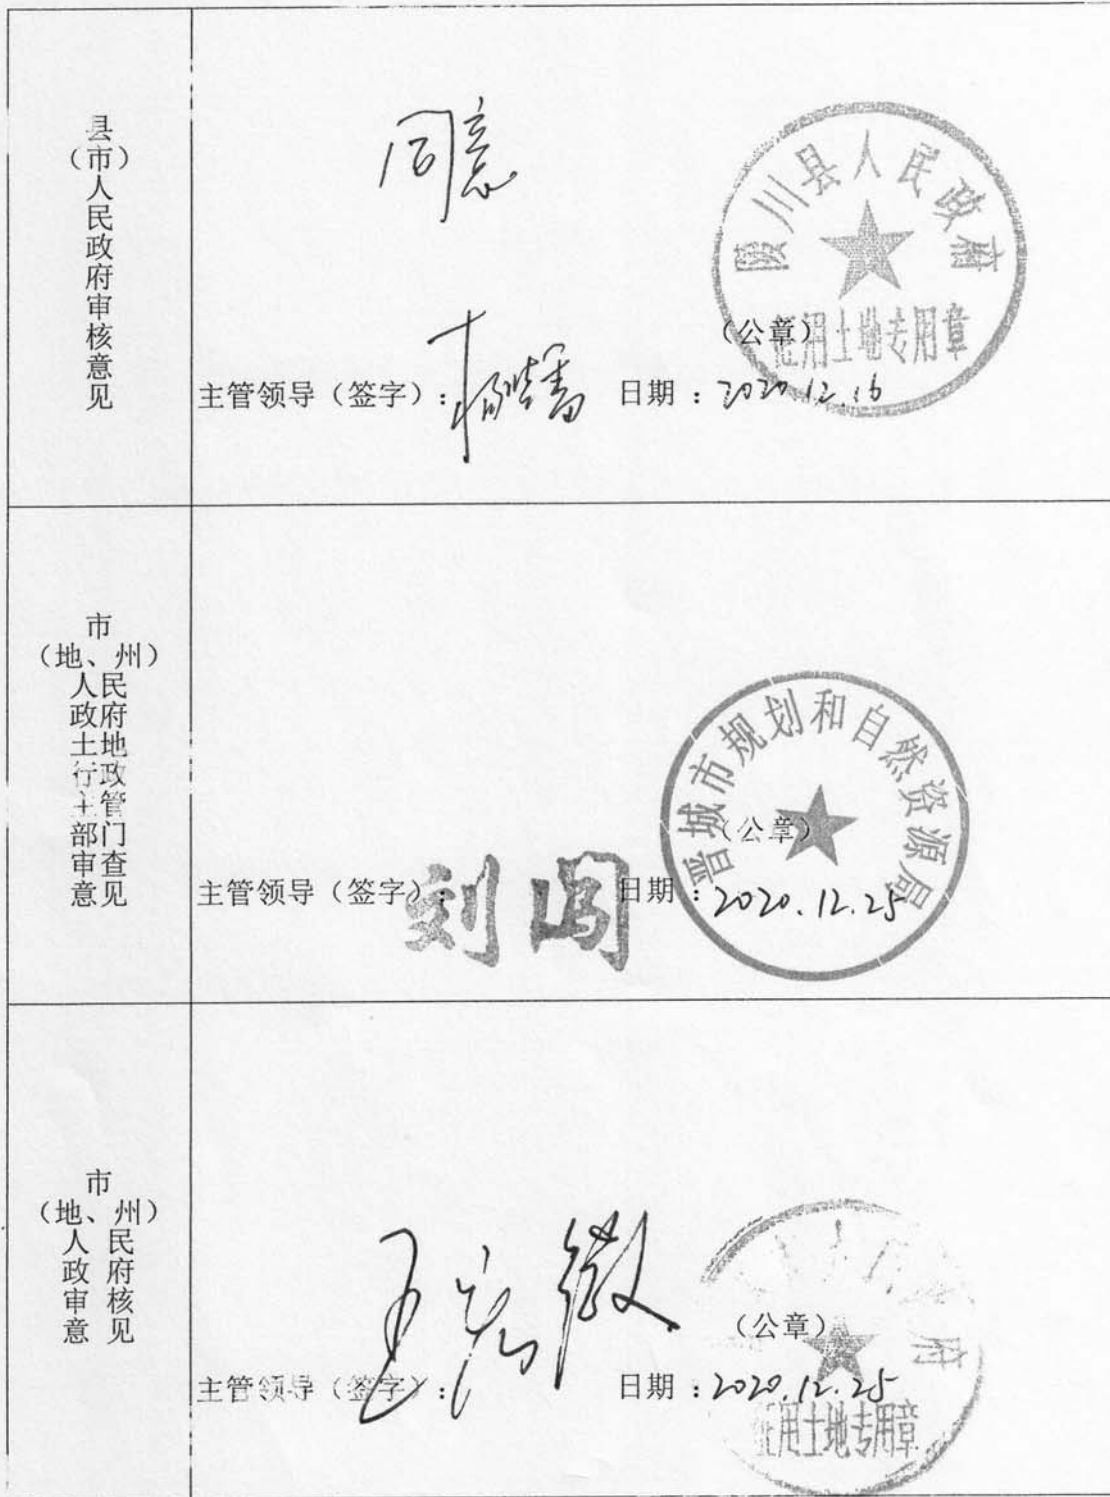 县
（市）
人
民
政
府
审
核
意
见
同意
陵川县人民政府
征用土地专用章
（公章）
主管领导（签字）：
日期：2020.12.16
市
（地、州）
人民
政府
土地
行政
主管
部门
审查
意见
晋城市规划和自然资源局
（公章）
主管领导（签字）：刘闯
日期：2020.12.25
市
（地、州）
人民
政府
审核
意见
（公章）
主管领导（签字）：
日期：2020.12.25
征用土地专用章